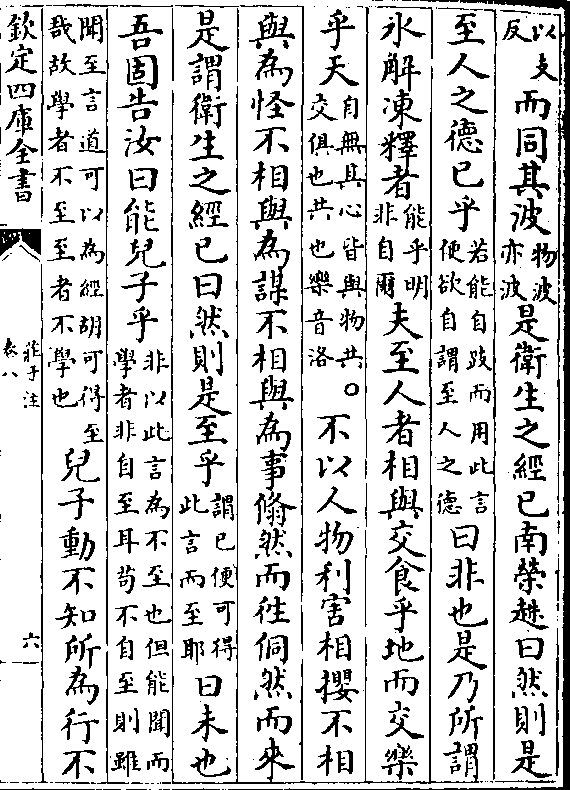 以支反而同其波物波亦波是衛生之經已南榮趎曰然則是
至人之德已乎若能自跂而用此言便欲自謂至人之德曰非也是乃所謂
氷解凍釋者能乎明非自爾夫至人者相與交食乎地而交樂
乎天自無其心皆與物共交俱也共也樂音洛○不以人物利害相攖不相
與為怪不相與為謀不相與為事翛然而徃侗然而來
是謂衛生之經已曰然則是至乎謂已便可得此言而至耶曰未也
吾固告汝曰能兒子乎非以此言為不至也但能聞而學者非自至耳苟不自至則雖
聞至言道可以為經胡可得至哉故學者不至至者不學也兒子動不知所為行不
欽定四庫全書
莊子注
卷八
六